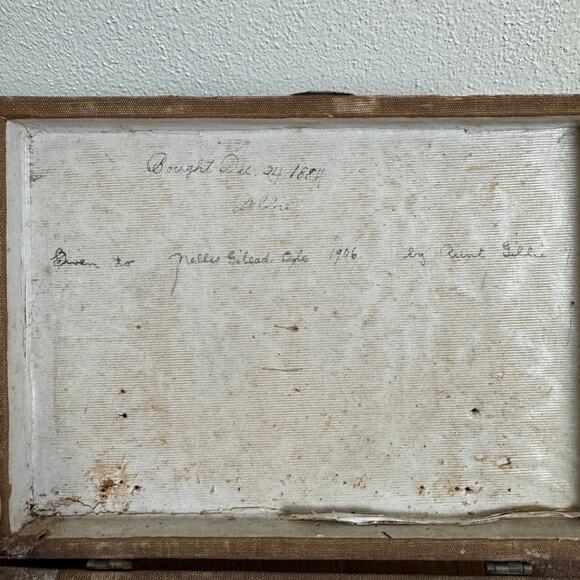 Bought Dec. 24 1884
Given to Nellie Gilead 1906 by Aunt Gillie